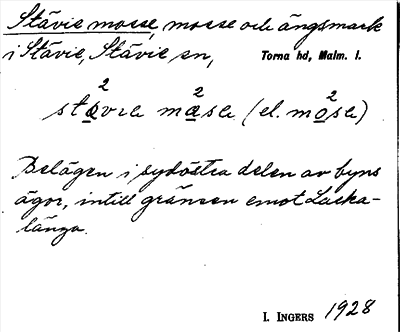 Stävie mosse, mosse och ängsmark
i Stävie, Stävie sn, Torna hd, Malm. l.
Belägen i sydöstra delen av byns
ägor, intill gränsen emot Lacka-
länga.
I. INGERS 1928